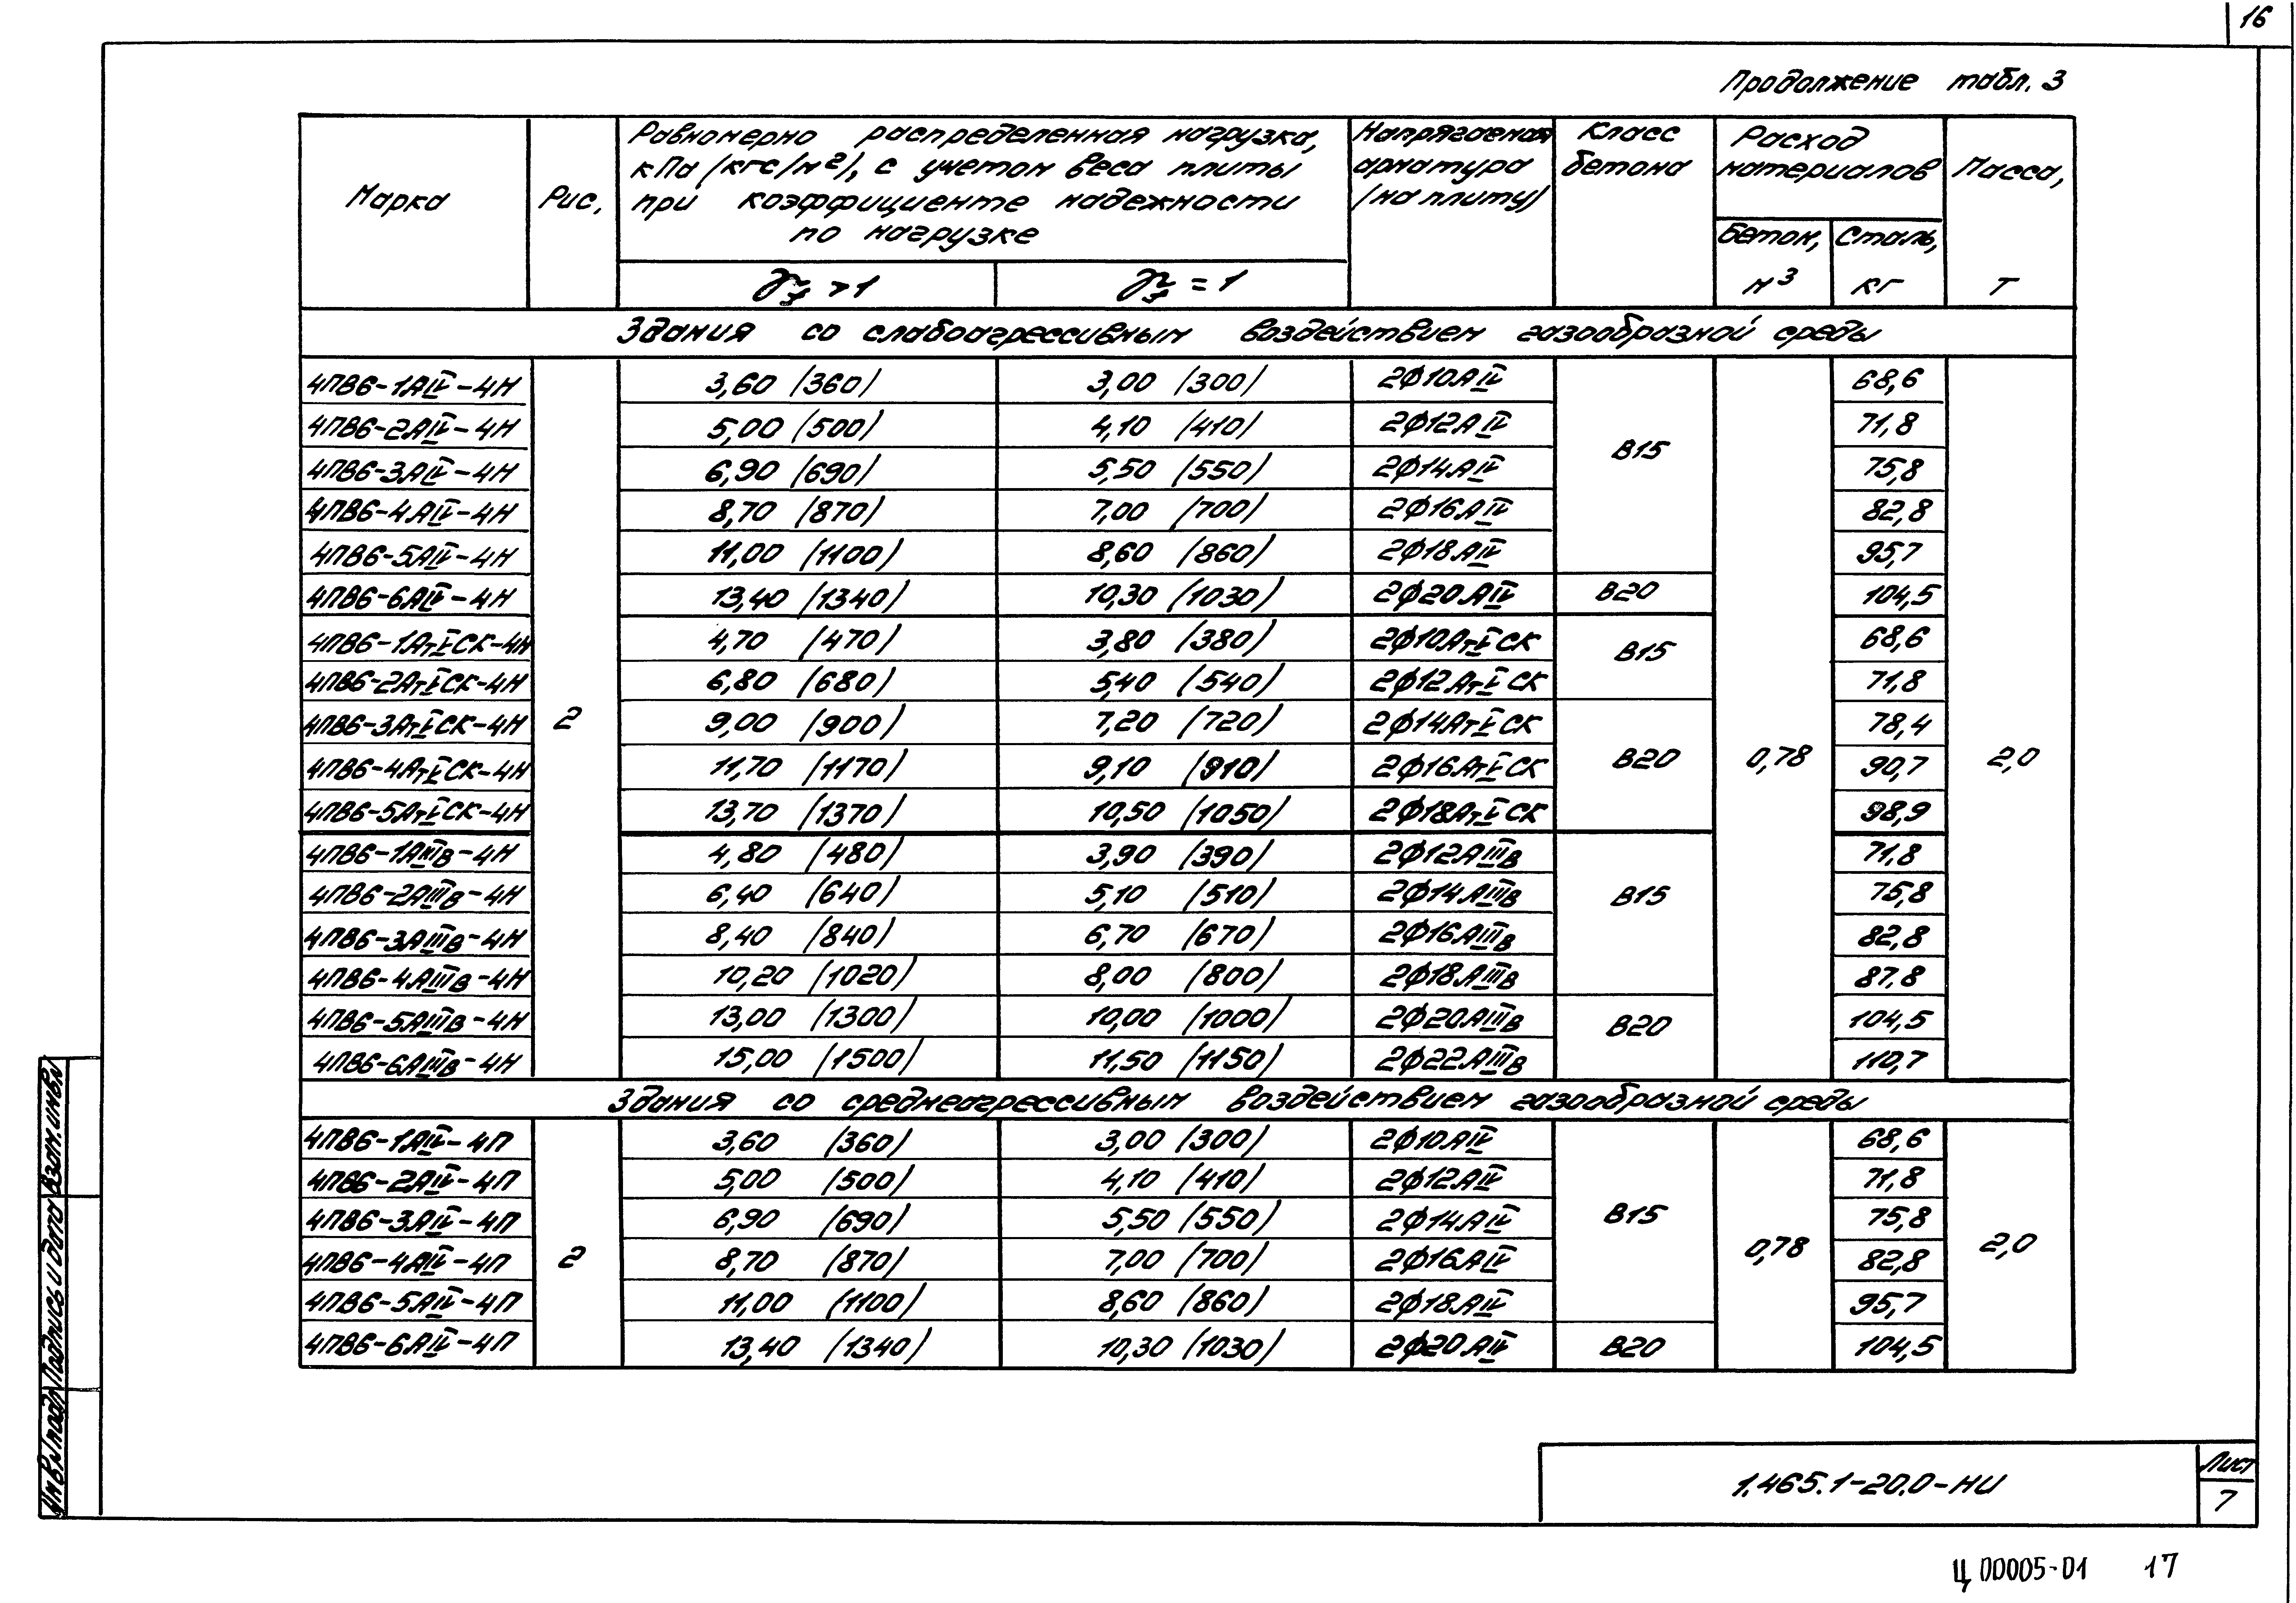 16
Продолжение табл. 3
Марка
Рис.
Равномерно распределенная нагрузка,
кПа (кгс/м²), с учетом веса плиты
при коэффициенте надежности
по нагрузке
γf > 1
γf = 1
Напрягаемая
арматура
(на плиту)
Класс
бетона
Расход
материалов
Бетон,
м³
Сталь,
кг
Масса,
т
Здания со слабоагрессивным воздействием газообразной среды
4ПВ6-1АIV-4Н 3,60 (360) 3,00 (300) 2φ10АIV 68,6
4ПВ6-2АIV-4Н 5,00 (500) 4,10 (410) 2φ12АIV 71,8
В15
4ПВ6-3АIV-4Н 6,90 (690) 5,50 (550) 2φ14АIV 75,8
4ПВ6-4АIV-4Н 8,70 (870) 7,00 (700) 2φ16АIV 82,8
4ПВ6-5АIV-4Н 11,00 (1100) 8,60 (860) 2φ18АIV 95,7
4ПВ6-6АIV-4Н 13,40 (1340) 10,30 (1030) 2φ20АIV В20 104,5
4ПВ6-1АтVСК-4Н 4,70 (470) 3,80 (380) 2φ10АтVСК В15 68,6
4ПВ6-2АтVСК-4Н 6,80 (680) 5,40 (540) 2φ12АтVСК 71,8
4ПВ6-3АтVСК-4Н 2 9,00 (900) 7,20 (720) 2φ14АтVСК 78,4
4ПВ6-4АтVСК-4Н 11,70 (1170) 9,10 (910) 2φ16АтVСК В20 0,78 90,7 2,0
4ПВ6-5АтVСК-4Н 13,70 (1370) 10,50 (1050) 2φ18АтVСК 98,9
4ПВ6-1АIIIВ-4Н 4,80 (480) 3,90 (390) 2φ12АIIIВ 71,8
4ПВ6-2АIIIВ-4Н 6,40 (640) 5,10 (510) 2φ14АIIIВ В15 75,8
4ПВ6-3АIIIВ-4Н 8,40 (840) 6,70 (670) 2φ16АIIIВ 82,8
4ПВ6-4АIIIВ-4Н 10,20 (1020) 8,00 (800) 2φ18АIIIВ 87,8
4ПВ6-5АIIIВ-4Н 13,00 (1300) 10,00 (1000) 2φ20АIIIВ В20 104,5
4ПВ6-6АIIIВ-4Н 15,00 (1500) 11,50 (1150) 2φ22АIIIВ 110,7
Здания со среднеагрессивным воздействием газообразной среды
4ПВ6-1АIV-4П 3,60 (360) 3,00 (300) 2φ10АIV 68,6
4ПВ6-2АIV-4П 5,00 (500) 4,10 (410) 2φ12АIV 71,8
4ПВ6-3АIV-4П 6,90 (690) 5,50 (550) 2φ14АIV В15 75,8
4ПВ6-4АIV-4П 2 8,70 (870) 7,00 (700) 2φ16АIV 0,78 82,8 2,0
4ПВ6-5АIV-4П 11,00 (1100) 8,60 (860) 2φ18АIV 95,7
4ПВ6-6АIV-4П 13,40 (1340) 10,30 (1030) 2φ20АIV В20 104,5
Инв.№ подл. Подпись и дата Взам.инв.№
1.465.1-20.0-НИ
Лист
7
Ц 00005-01 17